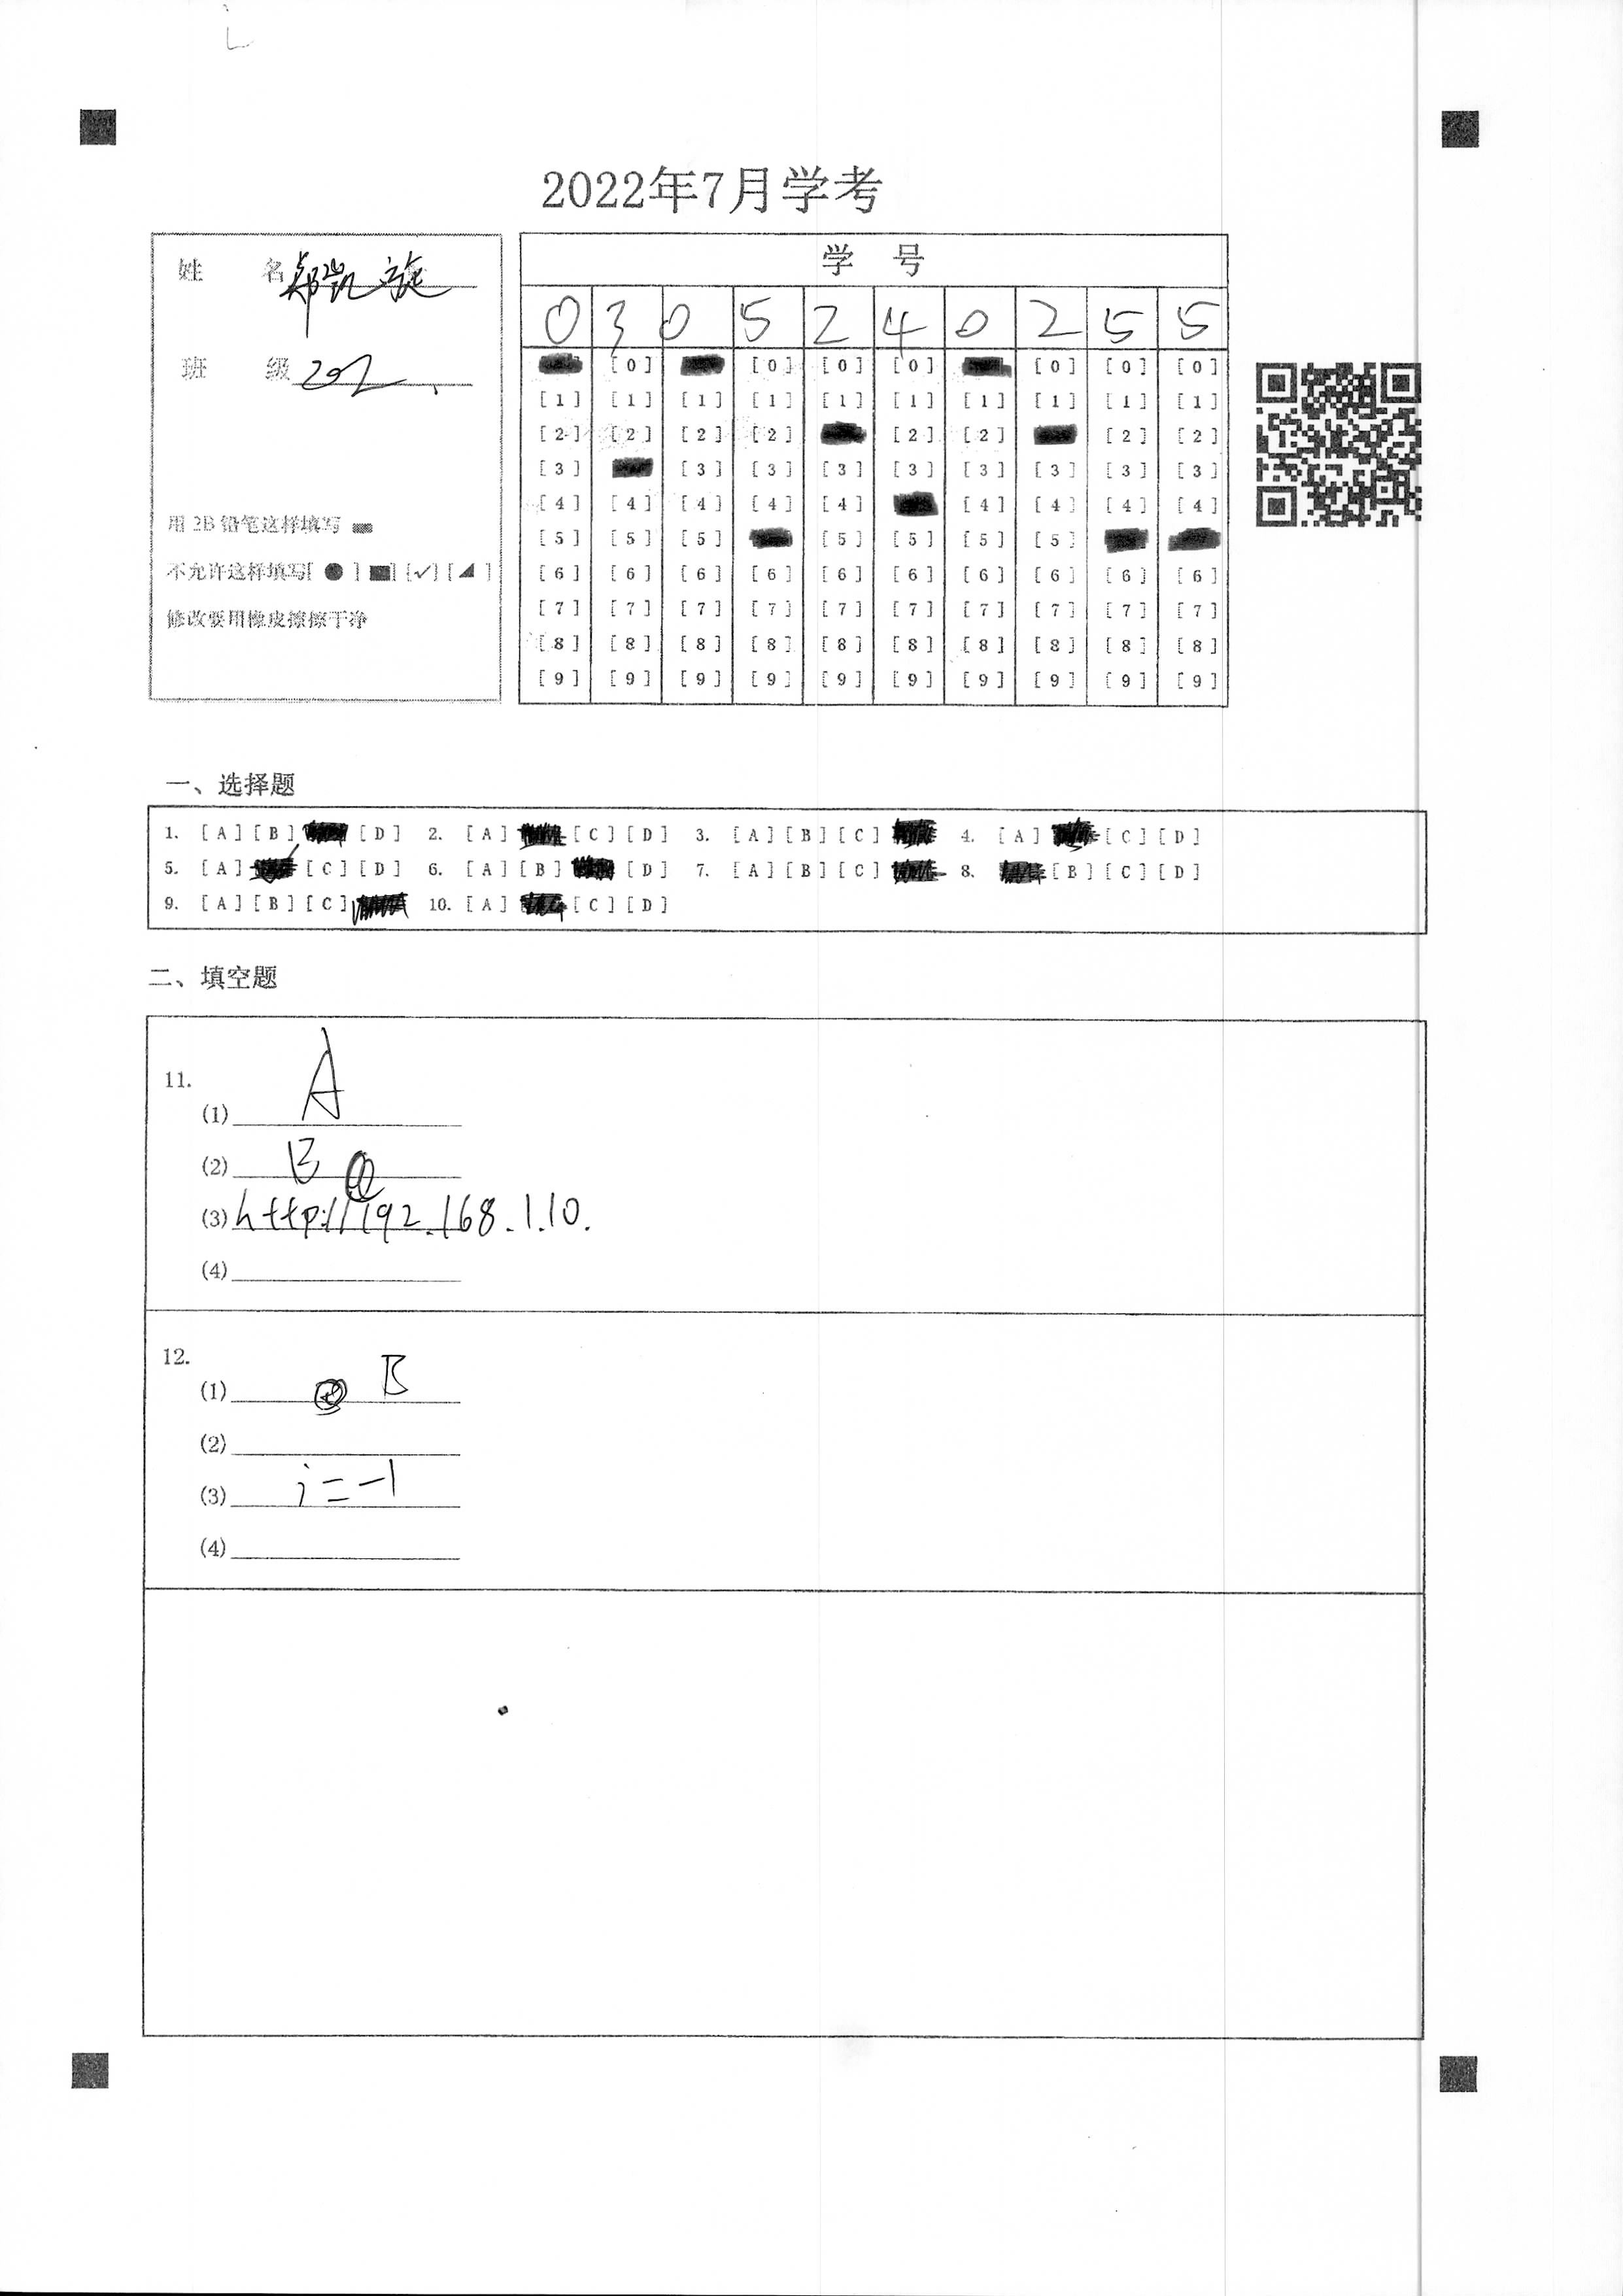 2022年7月学考
姓 名 郑凯旋
班 级 202
用 2B 铅笔这样填写
不允许这样填写[ ● ] [■] [✓] [◢ ]
修改要用橡皮擦擦干净
学 号
0 3 0 5 2 4 0 2 5 5
[0] [0] [0] [0] [0] [0] [0]
[1] [1] [1] [1] [1] [1] [1] [1] [1] [1]
[2] [2] [2] [2] [2] [2] [2] [2]
[3] [3] [3] [3] [3] [3] [3] [3] [3]
[4] [4] [4] [4] [4] [4] [4] [4] [4]
[5] [5] [5] [5] [5] [5] [5]
[6] [6] [6] [6] [6] [6] [6] [6] [6] [6]
[7] [7] [7] [7] [7] [7] [7] [7] [7] [7]
[8] [8] [8] [8] [8] [8] [8] [8] [8] [8]
[9] [9] [9] [9] [9] [9] [9] [9] [9] [9]
一、选择题
1. [A] [B] [D] 2. [A] [C] [D] 3. [A] [B] [C] 4. [A] [C] [D]
5. [A] [C] [D] 6. [A] [B] [D] 7. [A] [B] [C] 8. [B] [C] [D]
9. [A] [B] [C] 10. [A] [C] [D]
二、填空题
11.
(1) A
(2) B
(3) http://192.168.1.10.
(4)
12.
(1) B
(2)
(3) i=-1
(4)